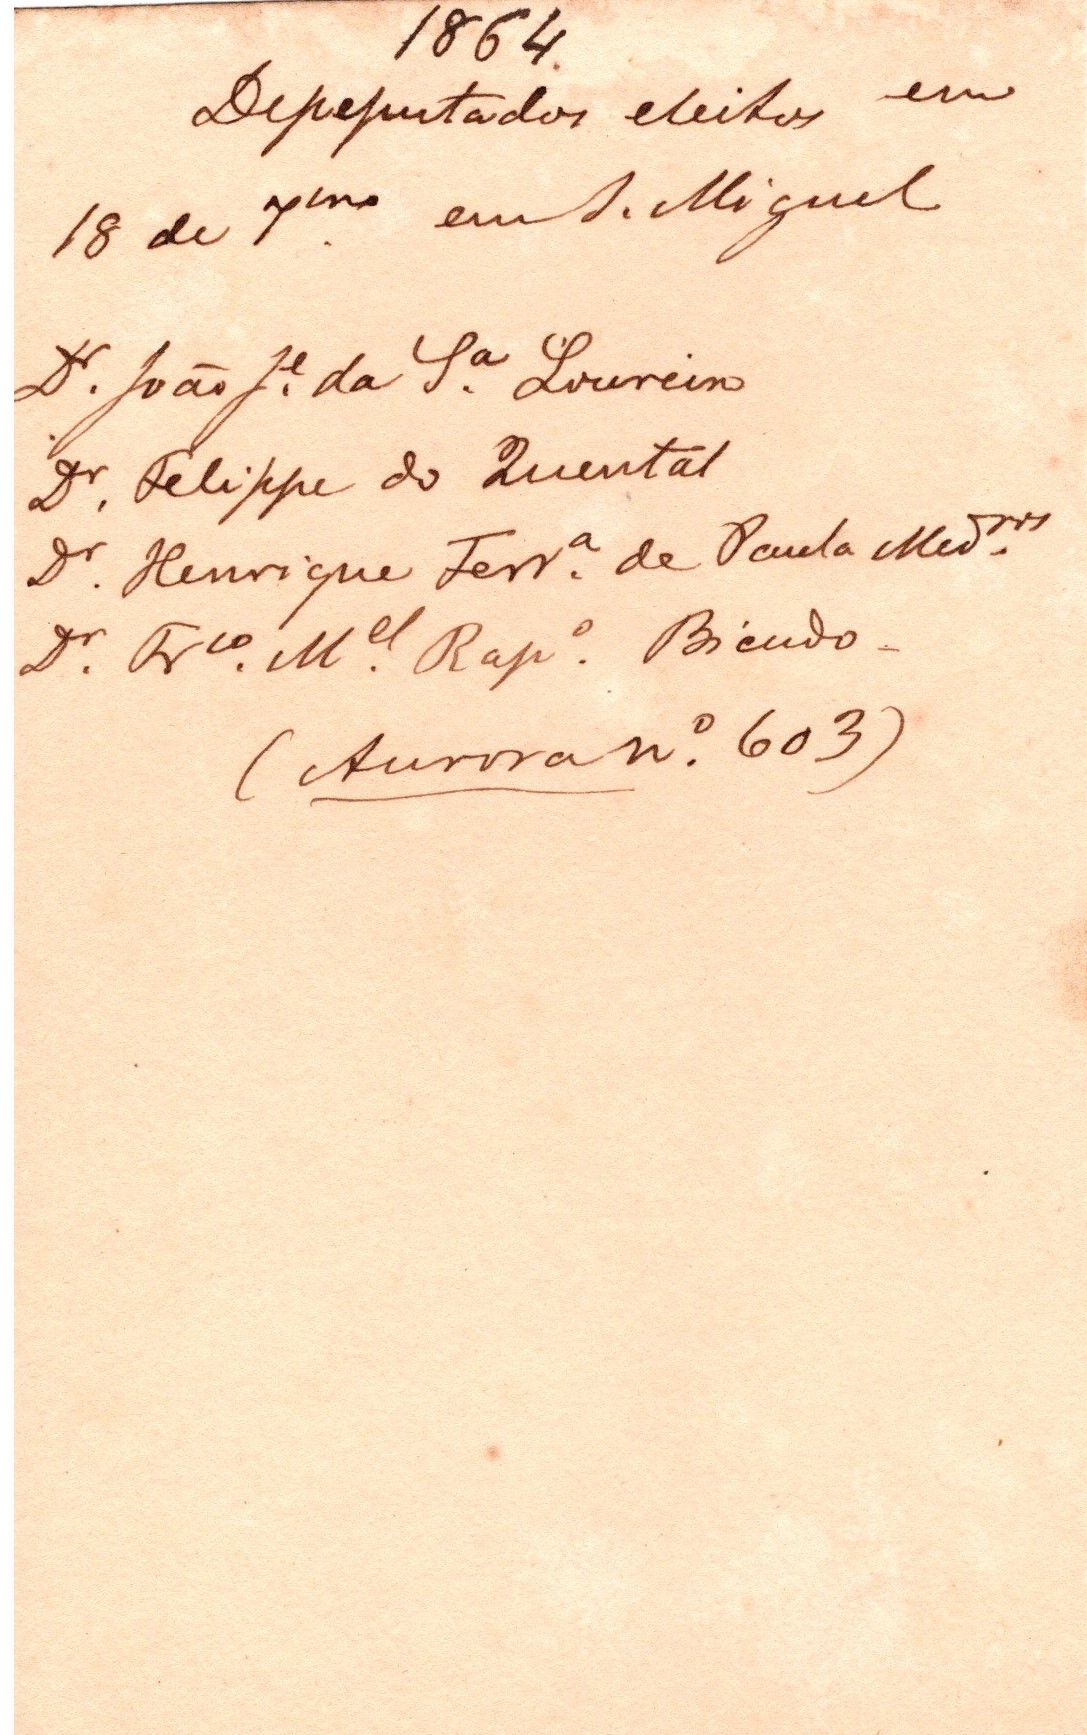 1864.
Depeputados eleitos em
18 de 7bro. em S. Miguel
Dr. João Jé. da Sa. Loureiro
Dr. Felippe do Quental
Dr. Henrique Ferra. de Paula Medros.
Dr. Frco. Mel. Rapo. Bicudo -
(Aurora nº. 603)